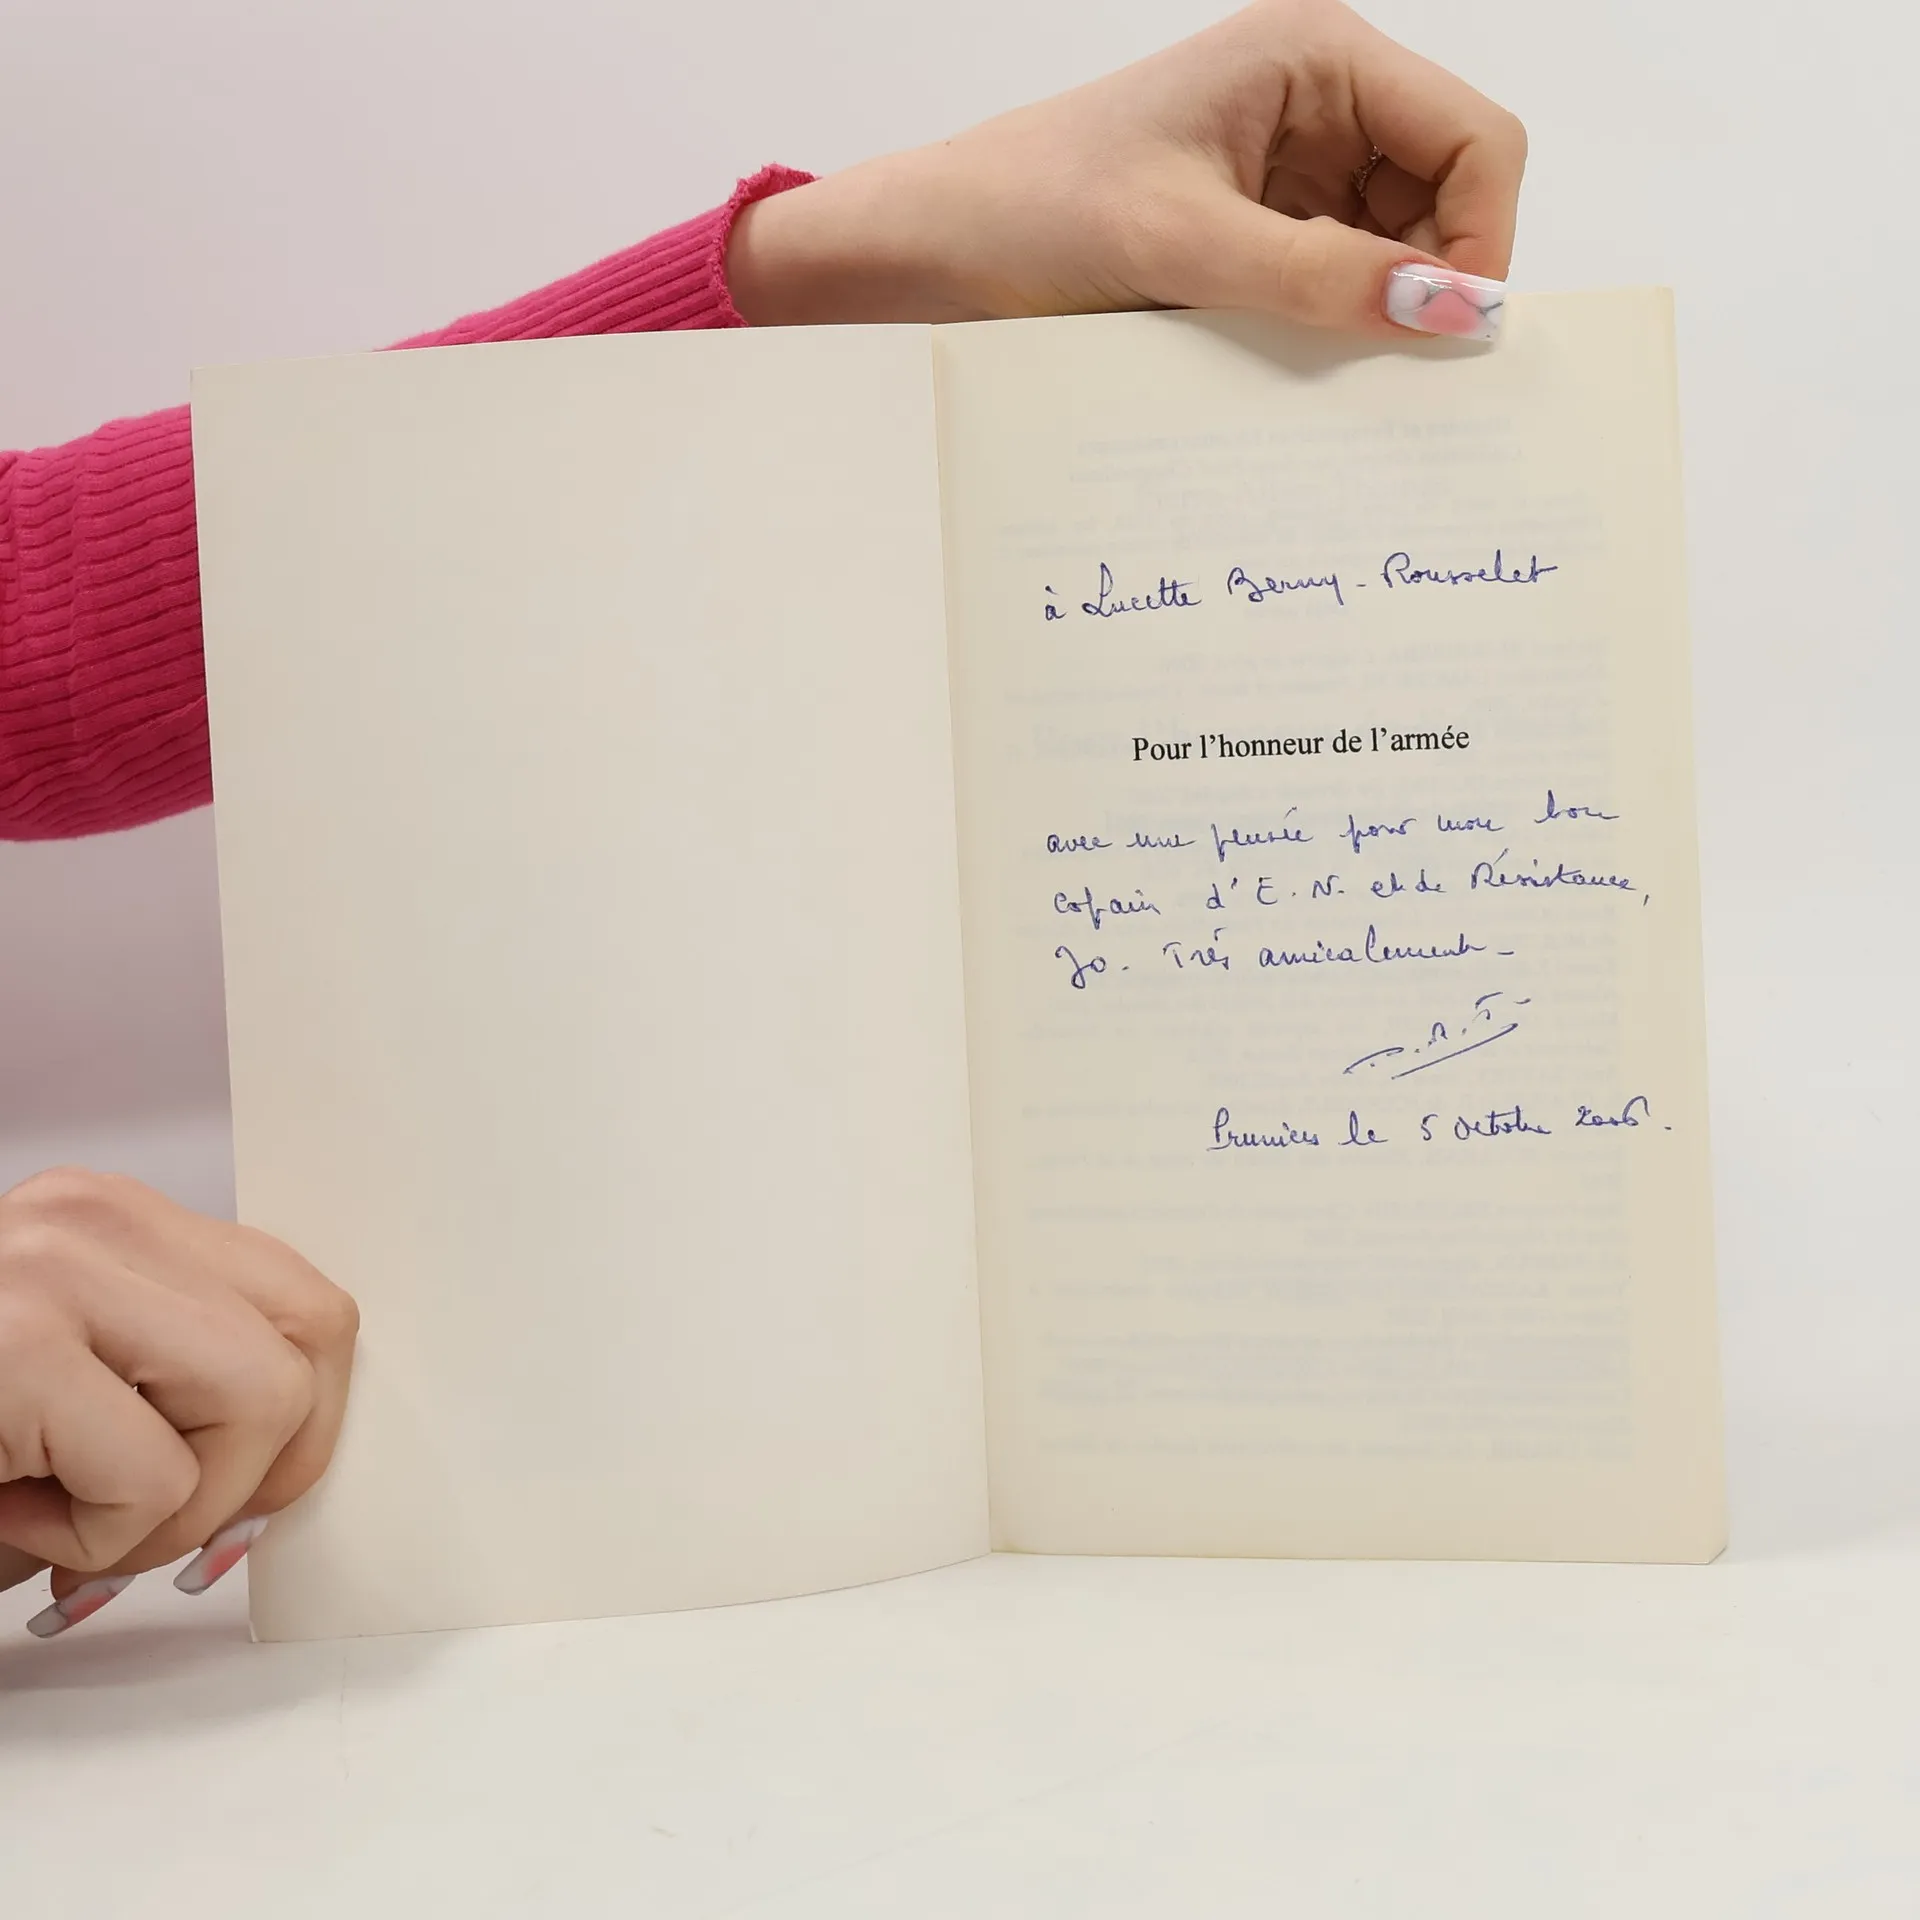 à Lucette Berny-Rousselet
Pour l'honneur de l'armée
avec une pensée pour mon bon
copain d'E.N. et de Résistance,
Jo. Très amicalement -
Pruniers le 5 octobre 2006.